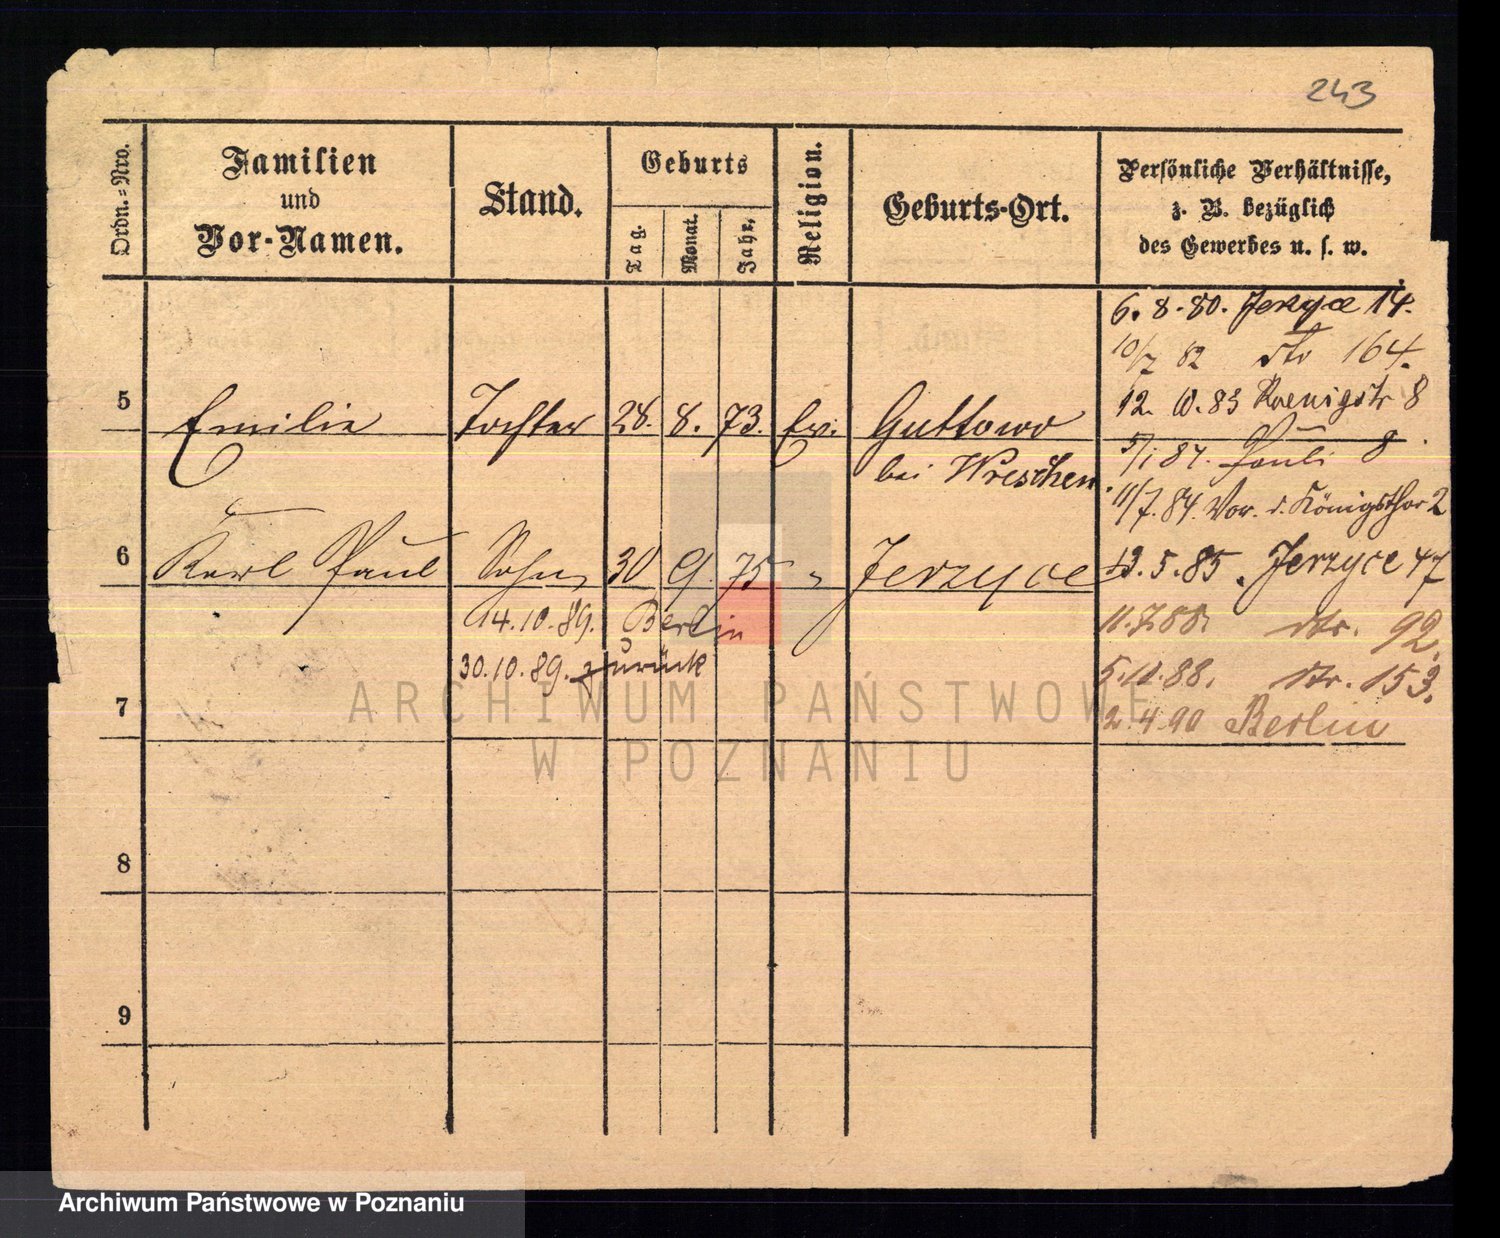 243
Ordn.-Nro.
Familien
und
Vor-Namen.
Stand.
Geburts
Tag.
Monat.
Jahr.
Religion.
Geburts-Ort.
Persönliche Verhältnisse,
z. B. bezüglich
des Gewerbes u. s. w.
6. 8. 80. Jerzyce 14.
10/7 82 dto 164.
12. 10. 83 Koenigstr 8
5 Emilie Tochter 28. 8. 73. Ev. Guttowo
bei Wreschen
5/1 84. Pauli 8
11/7. 84. Vor. d. Königsthor 2
6 Karl Paul Sohn 30 9. 75 " Jerzyce
13. 5. 85. Jerzyce 47
14. 10. 89. Berlin
11. 7. 88. dto. 92.
30. 10. 89. zurück
5. 10. 88. dto. 153.
7
2. 4. 90 Berlin
8
9
ARCHIWUM PAŃSTWOWE
W POZNANIU
Archiwum Państwowe w Poznaniu